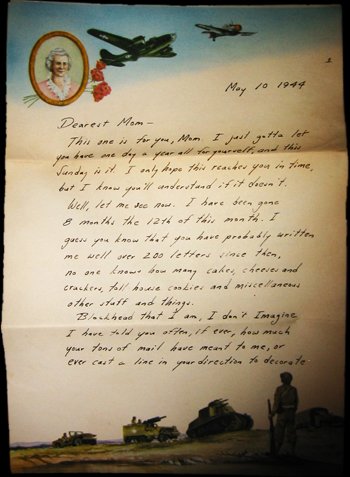 1
May 10 1944
Dearest Mom-
This one is for you, Mom. I just gotta let
you have one day a year all for yourself, and this
Sunday is it. I only hope this reaches you in time,
but I know you'll understand if it doesn't.
Well, let me see now. I have been gone
8 months the 12th of this month. I
guess you know that you have probably written
me well over 200 letters since then,
no one knows how many cakes, cheeses and
crackers, toll house cookies and miscellaneous
other stuff and things.
Blockhead that I am, I don't Imagine
I have told you often, if ever, how much
your tons of mail have meant to me, or
ever cast a line in your direction to decorate